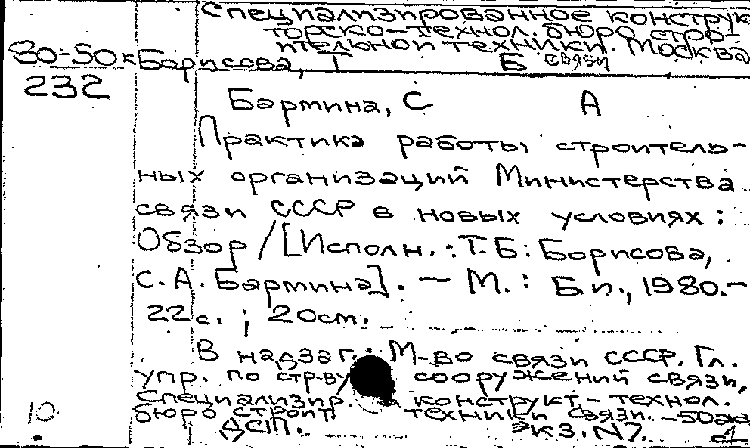 Специализированное конструк
торско-технол. бюро строи
тельной техники. Москва
связи
80-50к Борисова, Т Б
232
Бармина, С А
Практика работы строитель-
ных организаций Министерства
связи СССР в новых условиях:
Обзор / [Исполн.: Т.Б. Борисова,
С.А. Бармина]. — М.: Б.и., 1980.-
22с.; 20см.
В надзаг.: М-во связи СССР. Гл.
упр. по стр-ву сооружений связи,
Специализир. конструкт.-технол.
бюро строит техники связи. -50экз
10 ДСП. Экз. N7.